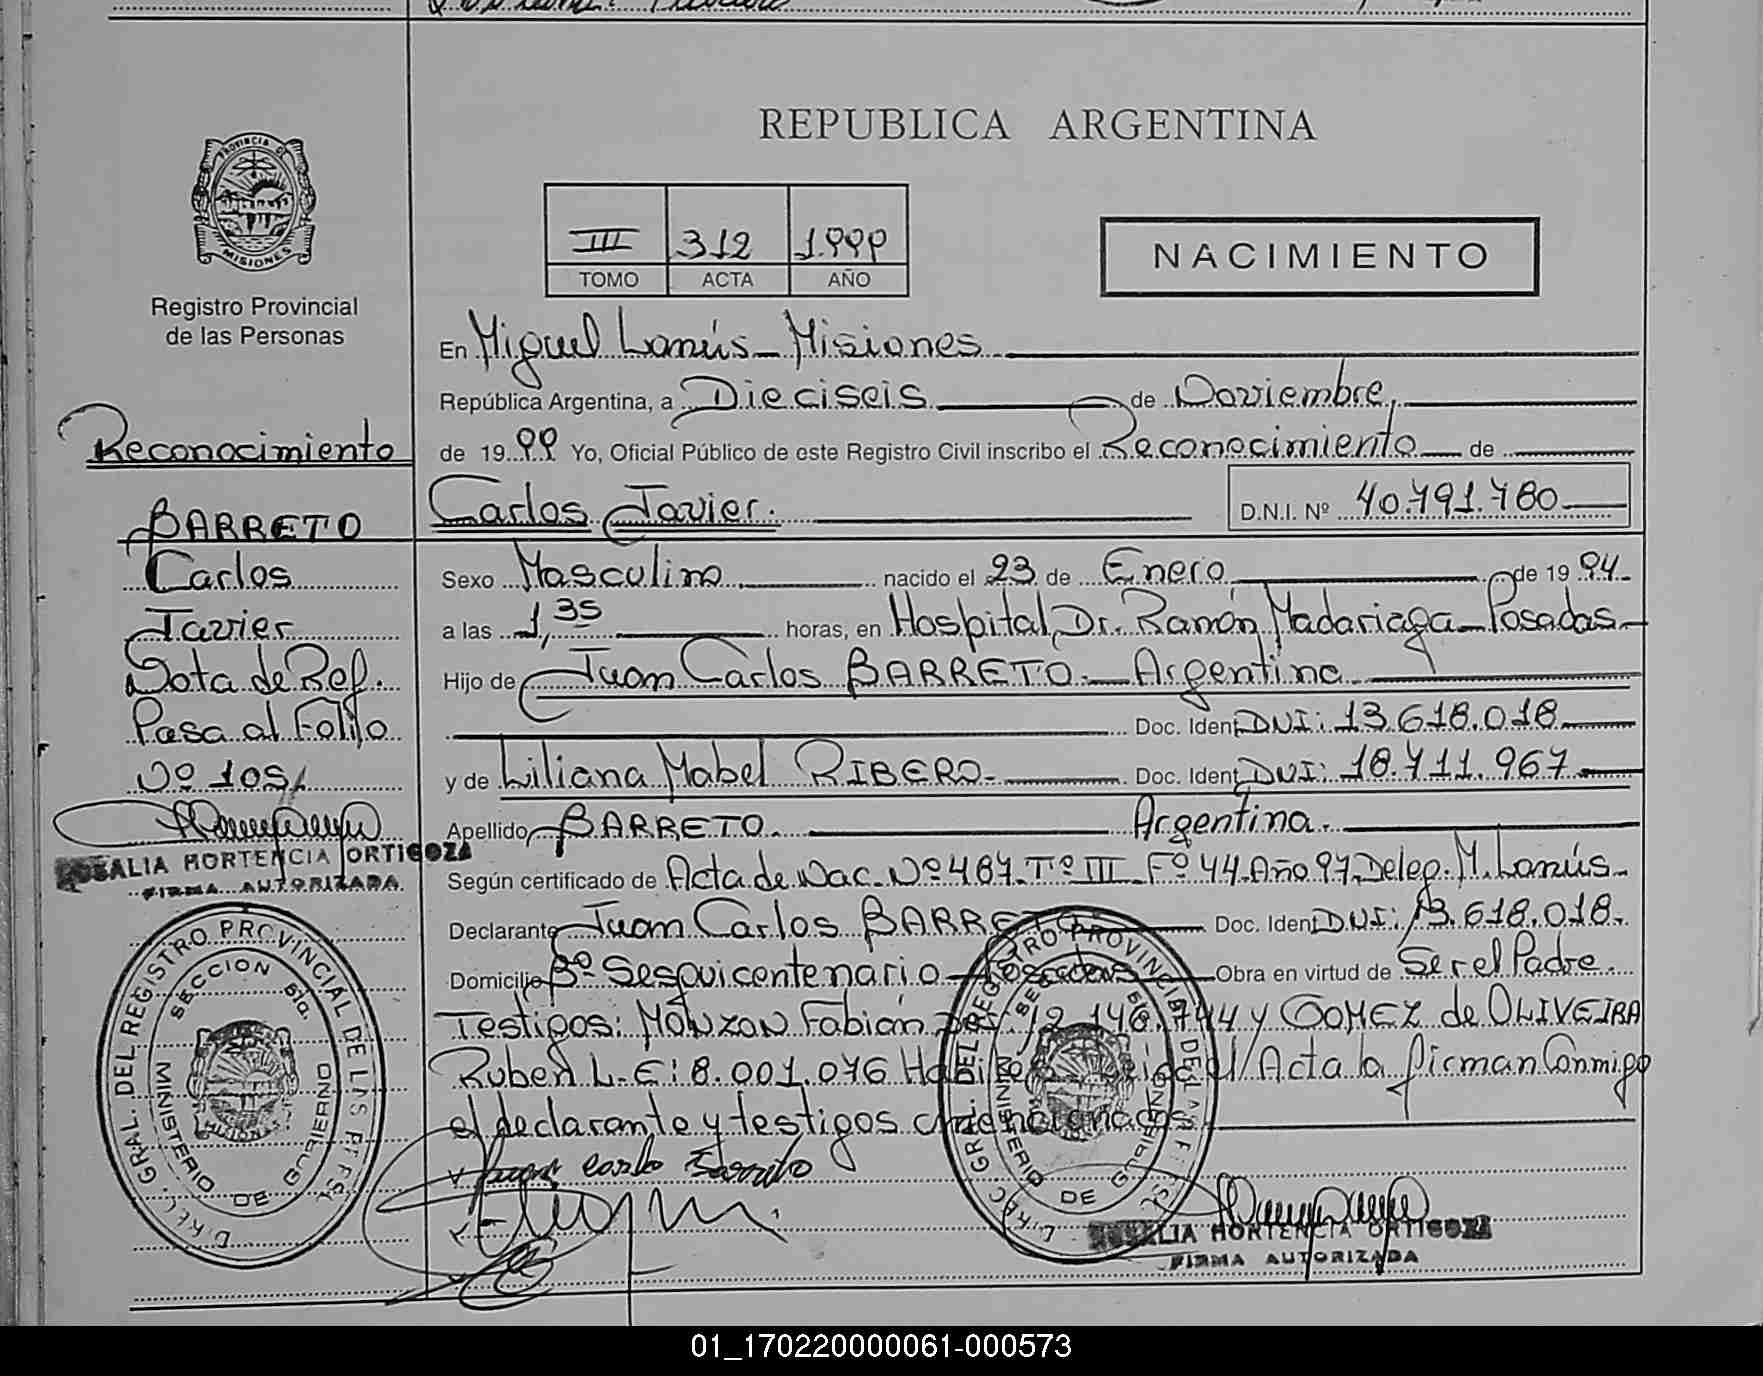 REPUBLICA ARGENTINA
PROVINCIA DE
MISIONES
Registro Provincial
de las Personas
III 312 1.999
TOMO ACTA AÑO
NACIMIENTO
En Miguel Lanús - Misiones
República Argentina, a Dieciseis de Noviembre,
de 19 99 Yo, Oficial Público de este Registro Civil inscribo el Reconocimiento de
Carlos Javier. D.N.I. Nº 40.791.780
Sexo Masculino nacido el 23 de Enero de 19 94
a las 1,35 horas, en Hospital Dr. Ramón Madariaga - Posadas
Hijo de Juan Carlos BARRETO - Argentina
Doc. Ident DNI: 13.618.018
y de Liliana Mabel RIBERO. Doc. Ident DNI: 18.711.967
Apellido BARRETO. Argentina.
Según certificado de Acta de Nac. Nº 487 Tº III Fº 44 Año 97 Deleg. M. Lanús
Declarante Juan Carlos BARRETO Doc. Ident DNI: 13.618.018.
Domicilio Bº Sesquicentenario - Posadas Obra en virtud de Ser el Padre.
Testigos: MONZON Fabián 744 y GOMEZ de OLIVEIRA
Ruben L.E: 8.001.076 Acta la firman Conmigo
el declarante y testigos mencionados
Juan Carlo Barreto
ROSALIA HORTENCIA ORTIGOZA
FIRMA AUTORIZADA
Reconocimiento
BARRETO
Carlos
Javier
Nota de Ref.
Pasa al Folijo
Nº 105
ROSALIA HORTENCIA ORTIGOZA
FIRMA AUTORIZADA
DIREC. GRAL. DEL REGISTRO PROVINCIAL DE LAS
SECCION
MINISTERIO DE GOBIERNO
01_170220000061-000573